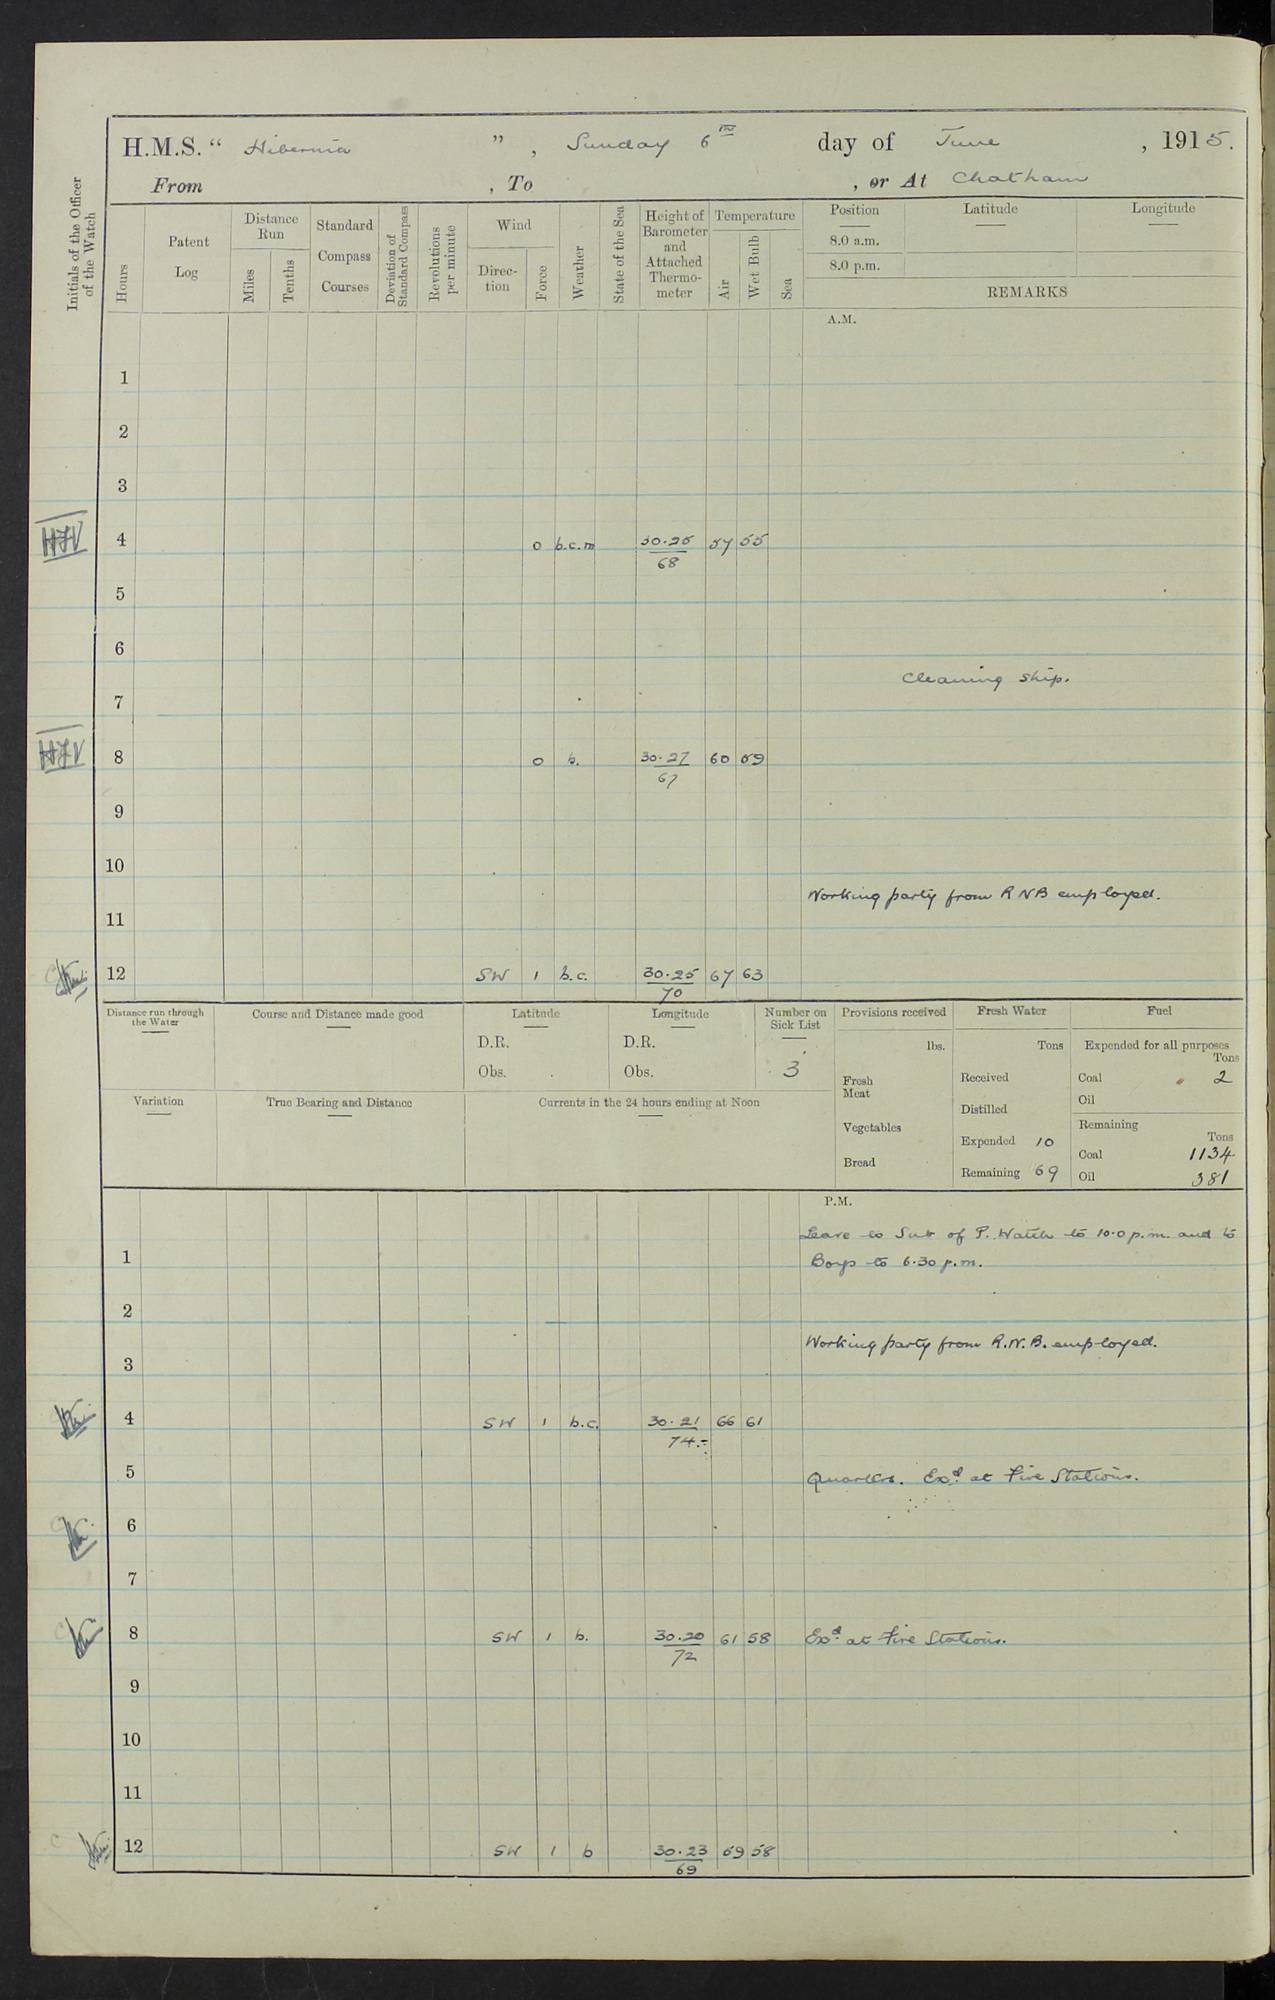 H.M.S. “ Hibernia ” , Sunday 6th day of June , 1915.
From , To , or At Chatham
Initials of the Officer of the Watch
Hours
Patent Log
Distance Run
Miles
Tenths
Standard Compass Courses
Deviation of Standard Compass
Revolutions per minute
Wind
Direction
Force
Weather
State of the Sea
Height of Barometer and Attached Thermometer
Temperature
Air
Wet Bulb
Sea
Position Latitude Longitude
8.0 a.m.
8.0 p.m.
REMARKS
A.M.
1
2
3
HJV 4 0 b.c.m 30.25 57 55
68
5
6
Cleaning ship.
7
HJV 8 0 b. 30.27 60 59
67
9
10
Working party from RNB employed.
11
12 SW 1 b.c. 30.25 67 63
70
Distance run through the Water
Course and Distance made good
Latitude
D.R.
Obs.
Longitude
D.R.
Obs.
Number on Sick List
3
Variation
True Bearing and Distance
Currents in the 24 hours ending at Noon
Provisions received
lbs.
Fresh Meat
Vegetables
Bread
Fresh Water
Tons
Received
Distilled
Expended 10
Remaining 69
Fuel
Expended for all purposes
Tons
Coal 2
Oil
Remaining
Tons
Coal 1134
Oil 381
P.M.
Leave to Sub of P. Watch to 10.0 p.m. and to
1 Boys to 6.30 p.m.
2
Working party from R.N.B. employed.
3
4 SW 1 b.c. 30.21 66 61
74
5 Quarters. Exd. at Fire Stations.
6
7
8 SW 1 b. 30.20 61 58 Exd. at Fire Stations.
72
9
10
11
12 SW 1 b 30.23 59 58
69